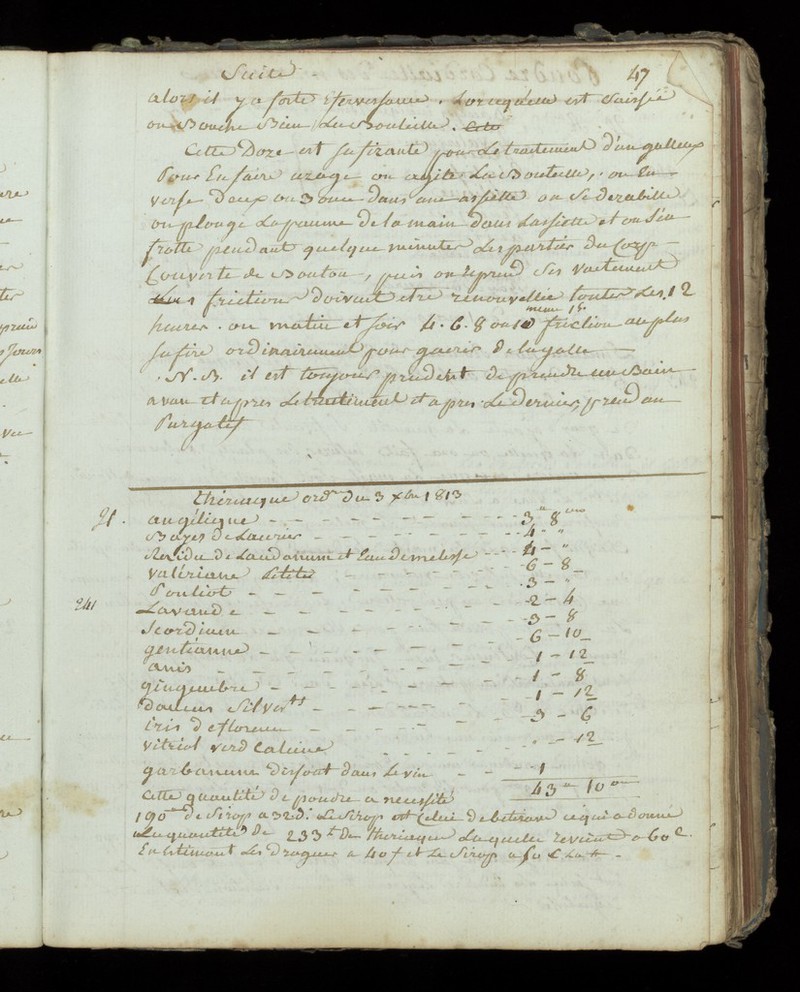 Suite 47
alors il y a forte efervessance. Lorsqu'elle est Baissée
on Bouche Bien la Bouteille. Cete
Cette Doze est sufizante pour Le traitement d'un galleux
Pour En faire uzage on agite La Bouteille, on En
verse Deux ou 3 once Dans une assiette on se dezabille
on plonge La paume De la main Dans Lassiette et on s'en
frotte pendant quelque minutes Les parties Du Corp
Couverte de Bouton, puis on reprend ses vaitement
Les friction Doivent etre renouvellée toutes Les 12
heures. ou matin et soir 4. 6. 8 ou 10 friction au plus
meme 15.
sufire ordinairement pour guerir De la galle
N.B. il est toujour prudent de prendre un Bain
avan et apres Le traitement et apres Le dernier, prend un
Purgatif
Thériaque ord.re Du 3 Xbre 1813
angélique 3 8
Bayes De Laurier 4 "
Rezidu De Laudanum et Eau De melisse 4 "
valériane 6 8
Pouliot 3 "
241 Lavande 2 4
Scordium 3 8
gentianne 6 10
anis 1 12
gingembre 1 8
Daucus 1 12
iris De florence 3 6
vitriol verd Calciné " 12
garbanum Dissout dans Le vin 1
Cette quantité De poudre a necessité 43 10
190 De Sirop a 32 d. Le Sirop est Celui De beterave ce qui a donné
La quantité De 233 De Theriaque Laquelle revient a 60 c.
En Estimant Les Drogues a 40 f et Le Sirop a 50 c La